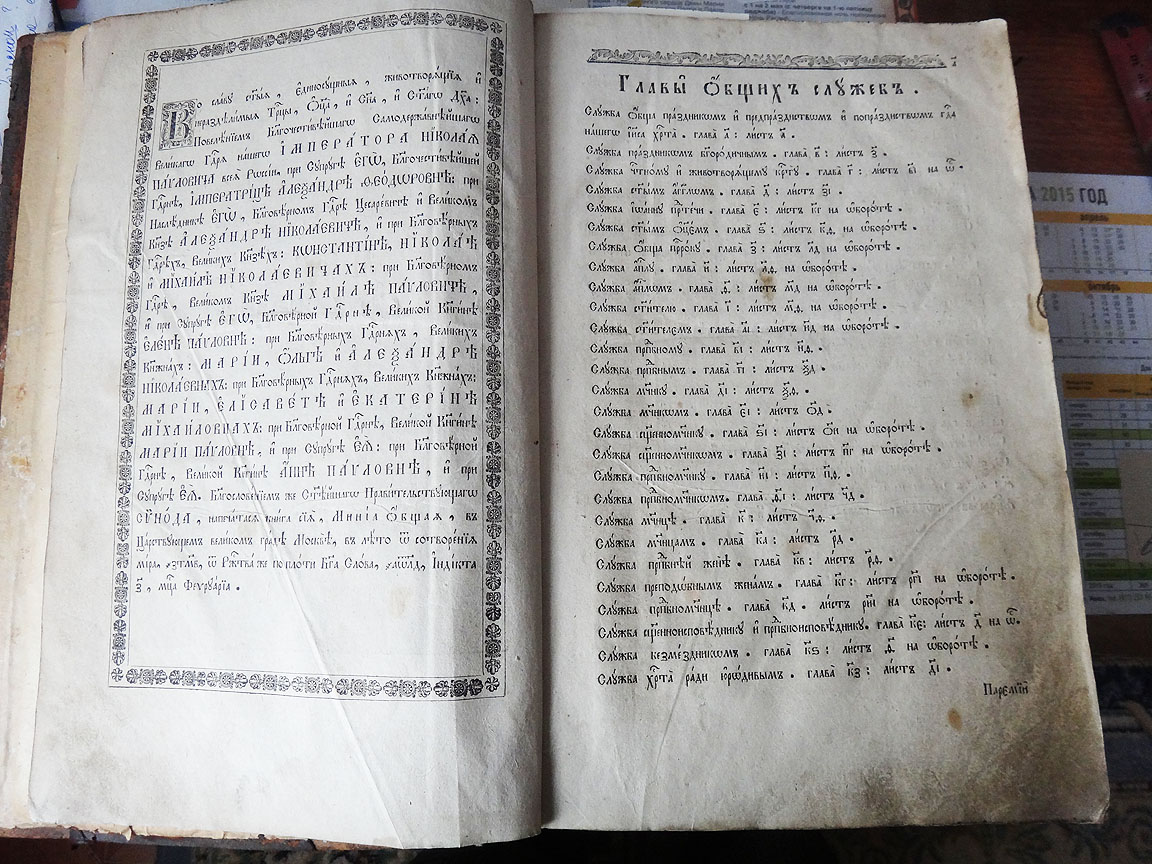 Во славу ст҃ыѧ, є҆диносꙋ́щныѧ, животворѧ́щїѧ и҆
нераздѣ́лимыѧ Трⷪ҇цы, Ѻ҆ц҃а̀, и҆ Сн҃а, и҆ Ст҃а́гѡ Дх҃а:
Повелѣ́нїемъ Благочести́вѣйшагѡ Самодержа́внѣйшагѡ
Вели́кагѡ Гдⷭ҇рѧ на́шегѡ І҆МПЕРА́ТОРА НІКОЛА́Ѧ
ПА́ѴЛОВИЧА всеѧ̀ Рѡссі́и: при Сꙋпрꙋ́гѣ Є҆ГѠ̀, Благочести́вѣйшей
Гдⷭ҇рнѣ, І҆МПЕРАТРИ́ЦѢ А҆ЛЕѮА́НДРѢ ѲЕО́ДѠРОВНѢ: при
Наслѣ́дникѣ Є҆ГѠ̀, Благовѣ́рномъ Гдⷭ҇рѣ Цесаре́вичѣ и҆ Вели́комъ
Кнѧ́зѣ А҆ЛЕѮА́НДРѢ НІКОЛА́ЕВИЧѢ, и҆ при Благовѣ́рныхъ
Гдⷭ҇рѣхъ, Вели́кихъ Кнѧ́зѣхъ: КѠНСТАНТІ́НѢ, НІКОЛА́Ѣ
и҆ МІХАИ́ЛѢ НІКОЛА́ЕВИЧАХЪ: при Благовѣ́рномъ
Гдⷭ҇рѣ, Вели́комъ Кнѧ́зѣ МІХАИ́ЛѢ ПА́ѴЛОВИЧѢ,
и҆ при Сꙋпрꙋ́гѣ Є҆ГѠ̀, Благовѣ́рной Гдⷭ҇рнѣ, Вели́кой Кнѧги́нѣ
Є҆ЛЕ́НѢ ПА́ѴЛОВНѢ: при Благовѣ́рныхъ Гдⷭ҇рнѧхъ, Вели́кихъ
Кнѧжна́хъ: МАРІ́И, Ѻ҆́ЛЬГѢ и҆ А҆ЛЕѮА́НДРѢ
НІКОЛА́ЕВНАХЪ: при Благовѣ́рныхъ Гдⷭ҇рнѧхъ, Вели́кихъ Кнѧжна́хъ:
МАРІ́И, Є҆ЛІСАВЕ́ТѢ и҆ Є҆КАТЕРІ́НѢ
МІХАИ́ЛОВНАХЪ: при Благовѣ́рной Гдⷭ҇рнѣ, Вели́кой Кнѧги́нѣ
МАРІ́И ПА́ѴЛОВНѢ, и҆ при Сꙋпрꙋ́гѣ Є҆Ѧ̀: при Благовѣ́рной
Гдⷭ҇рнѣ, Вели́кой Кнѧги́нѣ А҆́ННѢ ПА́ѴЛОВНѢ, и҆ при
Сꙋпрꙋ́гѣ Є҆Ѧ̀. Благослове́нїемъ же Ст҃ѣ́йшагѡ Прави́тельствꙋющагѡ
СѴНО́ДА, напеча́тасѧ кни́га сїѧ̀, Мині́а Ѻ҆́бщаѧ, въ
Ца́рствꙋющемъ вели́комъ гра́дѣ Москвѣ̀, въ лѣ́то ѿ сотворе́нїѧ
мі́ра, ҂зтмв, ѿ Ржⷭ҇тва̀ же по пло́ти Бг҃а Сло́ва, ҂аѡлд, І҆ндїкта
з҃, мцⷭ҇а Феврꙋа́рїа.
Главы̀ Ѻ҆́бщихъ слꙋ́жебъ.
Слꙋ́жба ѻ҆́бща пра́здникѡмъ и҆ предпра́зднствомъ и҆ попра́зднствомъ гдⷭ҇а
на́шегѡ і҆и҃са хрⷭ҇та̀. глава̀ а҃: ли́стъ а҃.
Слꙋ́жба пра́здникѡмъ бг҃оро́дичнымъ. глава̀ в҃: ли́стъ з҃.
Слꙋ́жба чⷭ҇тно́мꙋ и҆ животворѧ́щемꙋ крⷭ҇тꙋ̀. глава̀ г҃: ли́стъ в҃і на ѿ.
Слꙋ́жба ст҃ы̑мъ а҆́гг҃лѡмъ. глава̀ д҃: ли́стъ з҃і.
Слꙋ́жба і҆ѡа́ннꙋ пртⷣе́чи. глава̀ є҃: ли́стъ к҃г на ѡ҆боро́тѣ.
Слꙋ́жба ст҃ы̑мъ ѻ҆ц҃є́мъ. глава̀ ѕ҃: ли́стъ к҃ѳ на ѡ҆боро́тѣ.
Слꙋ́жба ѻ҆́бща прⷪ҇ро́кꙋ. глава̀ з҃: ли́стъ л҃д на ѡ҆боро́тѣ.
Слꙋ́жба а҆пⷭ҇лꙋ. глава̀ и҃: ли́стъ л҃ѳ на ѡ҆боро́тѣ.
Слꙋ́жба а҆пⷭ҇лѡмъ. глава̀ ѳ҃: ли́стъ м҃д на ѡ҆боро́тѣ.
Слꙋ́жба ст҃и́телю. глава̀ і҃: ли́стъ м҃ѳ на ѡ҆боро́тѣ.
Слꙋ́жба ст҃и́телємъ. глава̀ а҃і: ли́стъ н҃д на ѡ҆боро́тѣ.
Слꙋ́жба прпⷣбномꙋ. глава̀ в҃і: ли́стъ н҃ѳ.
Слꙋ́жба прпⷣбнымъ. глава̀ г҃і: ли́стъ ѯ҃д.
Слꙋ́жба мч҃нкꙋ. глава̀ д҃і: ли́стъ ѯ҃ѳ.
Слꙋ́жба мч҃нкѡмъ. глава̀ є҃і: ли́стъ ѻ҃д.
Слꙋ́жба сщ҃енномч҃нкꙋ. глава̀ ѕ҃і: ли́стъ ѻ҃и на ѡ҆боро́тѣ.
Слꙋ́жба сщ҃енномч҃нкѡмъ. глава̀ з҃і: ли́стъ п҃г на ѡ҆боро́тѣ.
Слꙋ́жба прпⷣбномч҃нкꙋ. глава̀ и҃і: ли́стъ п҃ѳ.
Слꙋ́жба прпⷣбномч҃нкѡмъ. глава̀ ѳ҃і: ли́стъ ч҃д.
Слꙋ́жба мч҃нцѣ. глава̀ к҃: ли́стъ ч҃ѳ.
Слꙋ́жба мч҃нцамъ. глава̀ к҃а: ли́стъ р҃д.
Слꙋ́жба прпⷣбнѣй женѣ̀. глава̀ к҃в: ли́стъ р҃ѳ.
Слꙋ́жба преподѡ́бнымъ жена́мъ. глава̀ к҃г: ли́стъ рг҃і на ѡ҆боро́тѣ.
Слꙋ́жба прпⷣбномч҃нцѣ. глава̀ к҃д. ли́стъ ри҃і на ѡ҆боро́тѣ.
Слꙋ́жба сщ҃енноисповѣ́дникꙋ и҆ прпⷣбноисповѣ́дникꙋ. глава̀ к҃є: ли́стъ д҃ на ѿ.
Слꙋ́жба безме́здникѡмъ. глава̀ к҃ѕ: ли́стъ ѳ҃ на ѡ҆боро́тѣ.
Слꙋ́жба хрⷭ҇та̀ ра́ди ю҆рѡ́дивымъ. глава̀ к҃з: ли́стъ д҃і.
Паремі́й
2015 ГОД
апрель
октябрь